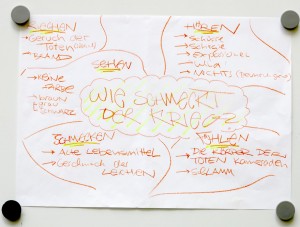 RIECHEN
→ Geruch der
TOTEN
→ BRAND
SEHEN
→ KEINE
FARBE
→ braun
grau
schwarz
HÖREN
→ Schüsse
→ Schreie
→ Explosionen
→ NACHTS
WIE SCHMECKT
DER KRIEG?
SCHMECKEN
→ Alle Lebensmittel
→ Geschmack der
LEICHEN
FÜHLEN
→ DIE KÖRPER DEREN
TOTEN Kameraden
→ SCHLAMM